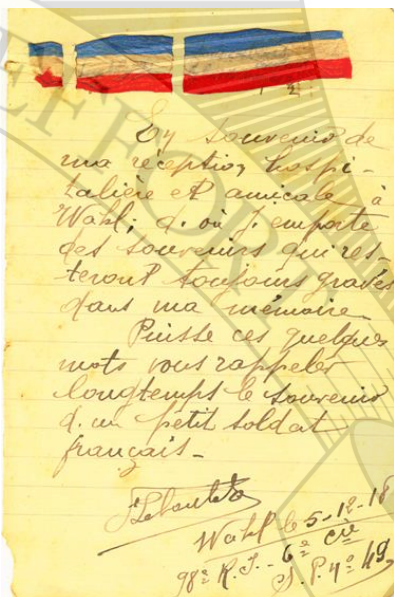 En souvenir de
ma réception hospi-
talière et amicale à
Wahl; d. où j. emporte
des souvenirs qui res-
teront toujours gravés
dans ma mémoire.
Puisse ces quelques
mots vous rappeler
longtemps le souvenir
d. un petit soldat
français -
Wahl le 5-12-18
98e R. I. - 6e Cie
S. P. No 49